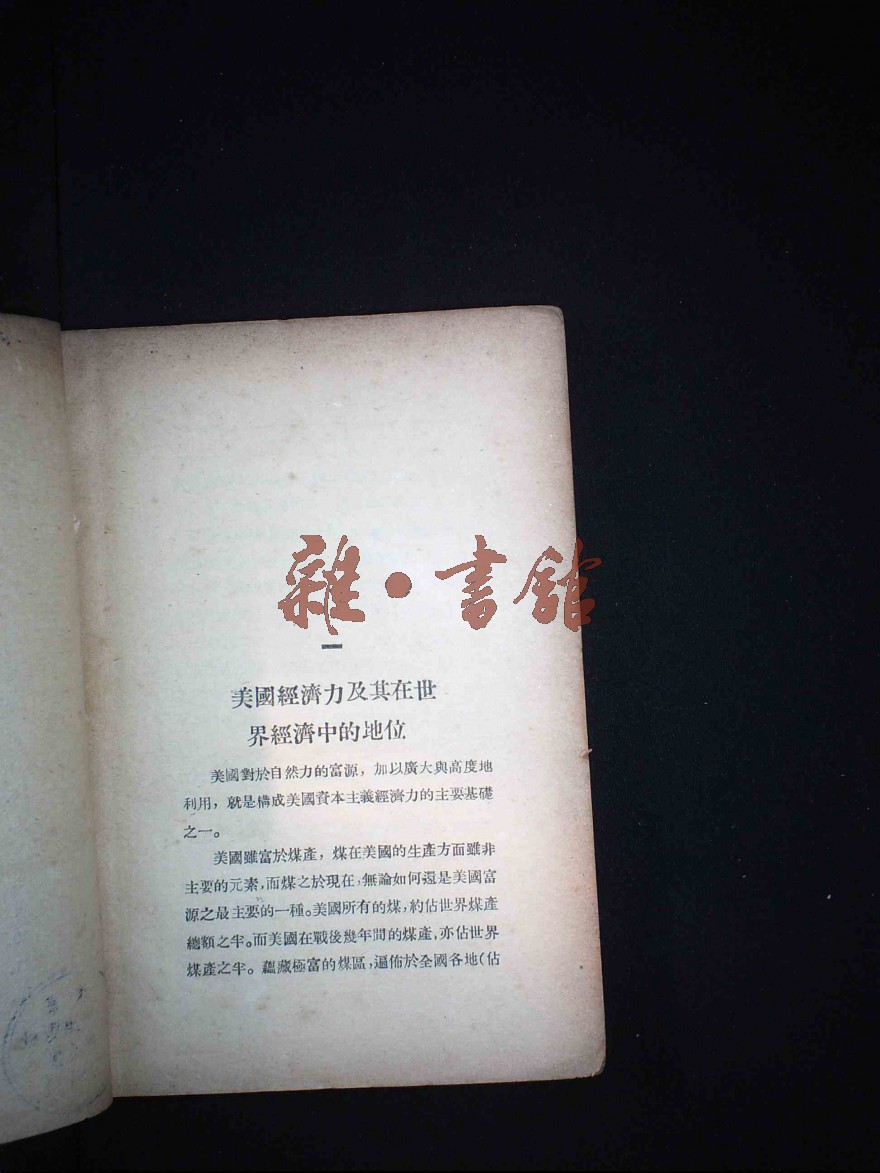 雜·書舘
一
美國經濟力及其在世
界經濟中的地位
美國對於自然力的富源，加以廣大與高度地
利用，就是構成美國資本主義經濟力的主要基礎
之一。
美國雖富於煤產，煤在美國的生產方面雖非
主要的元素，而煤之於現在，無論如何還是美國富
源之最主要的一種。美國所有的煤，約佔世界煤產
總額之半。而美國在戰後幾年間的煤產，亦佔世界
煤產之半。蘊藏極富的煤區，遍佈於全國各地（佔